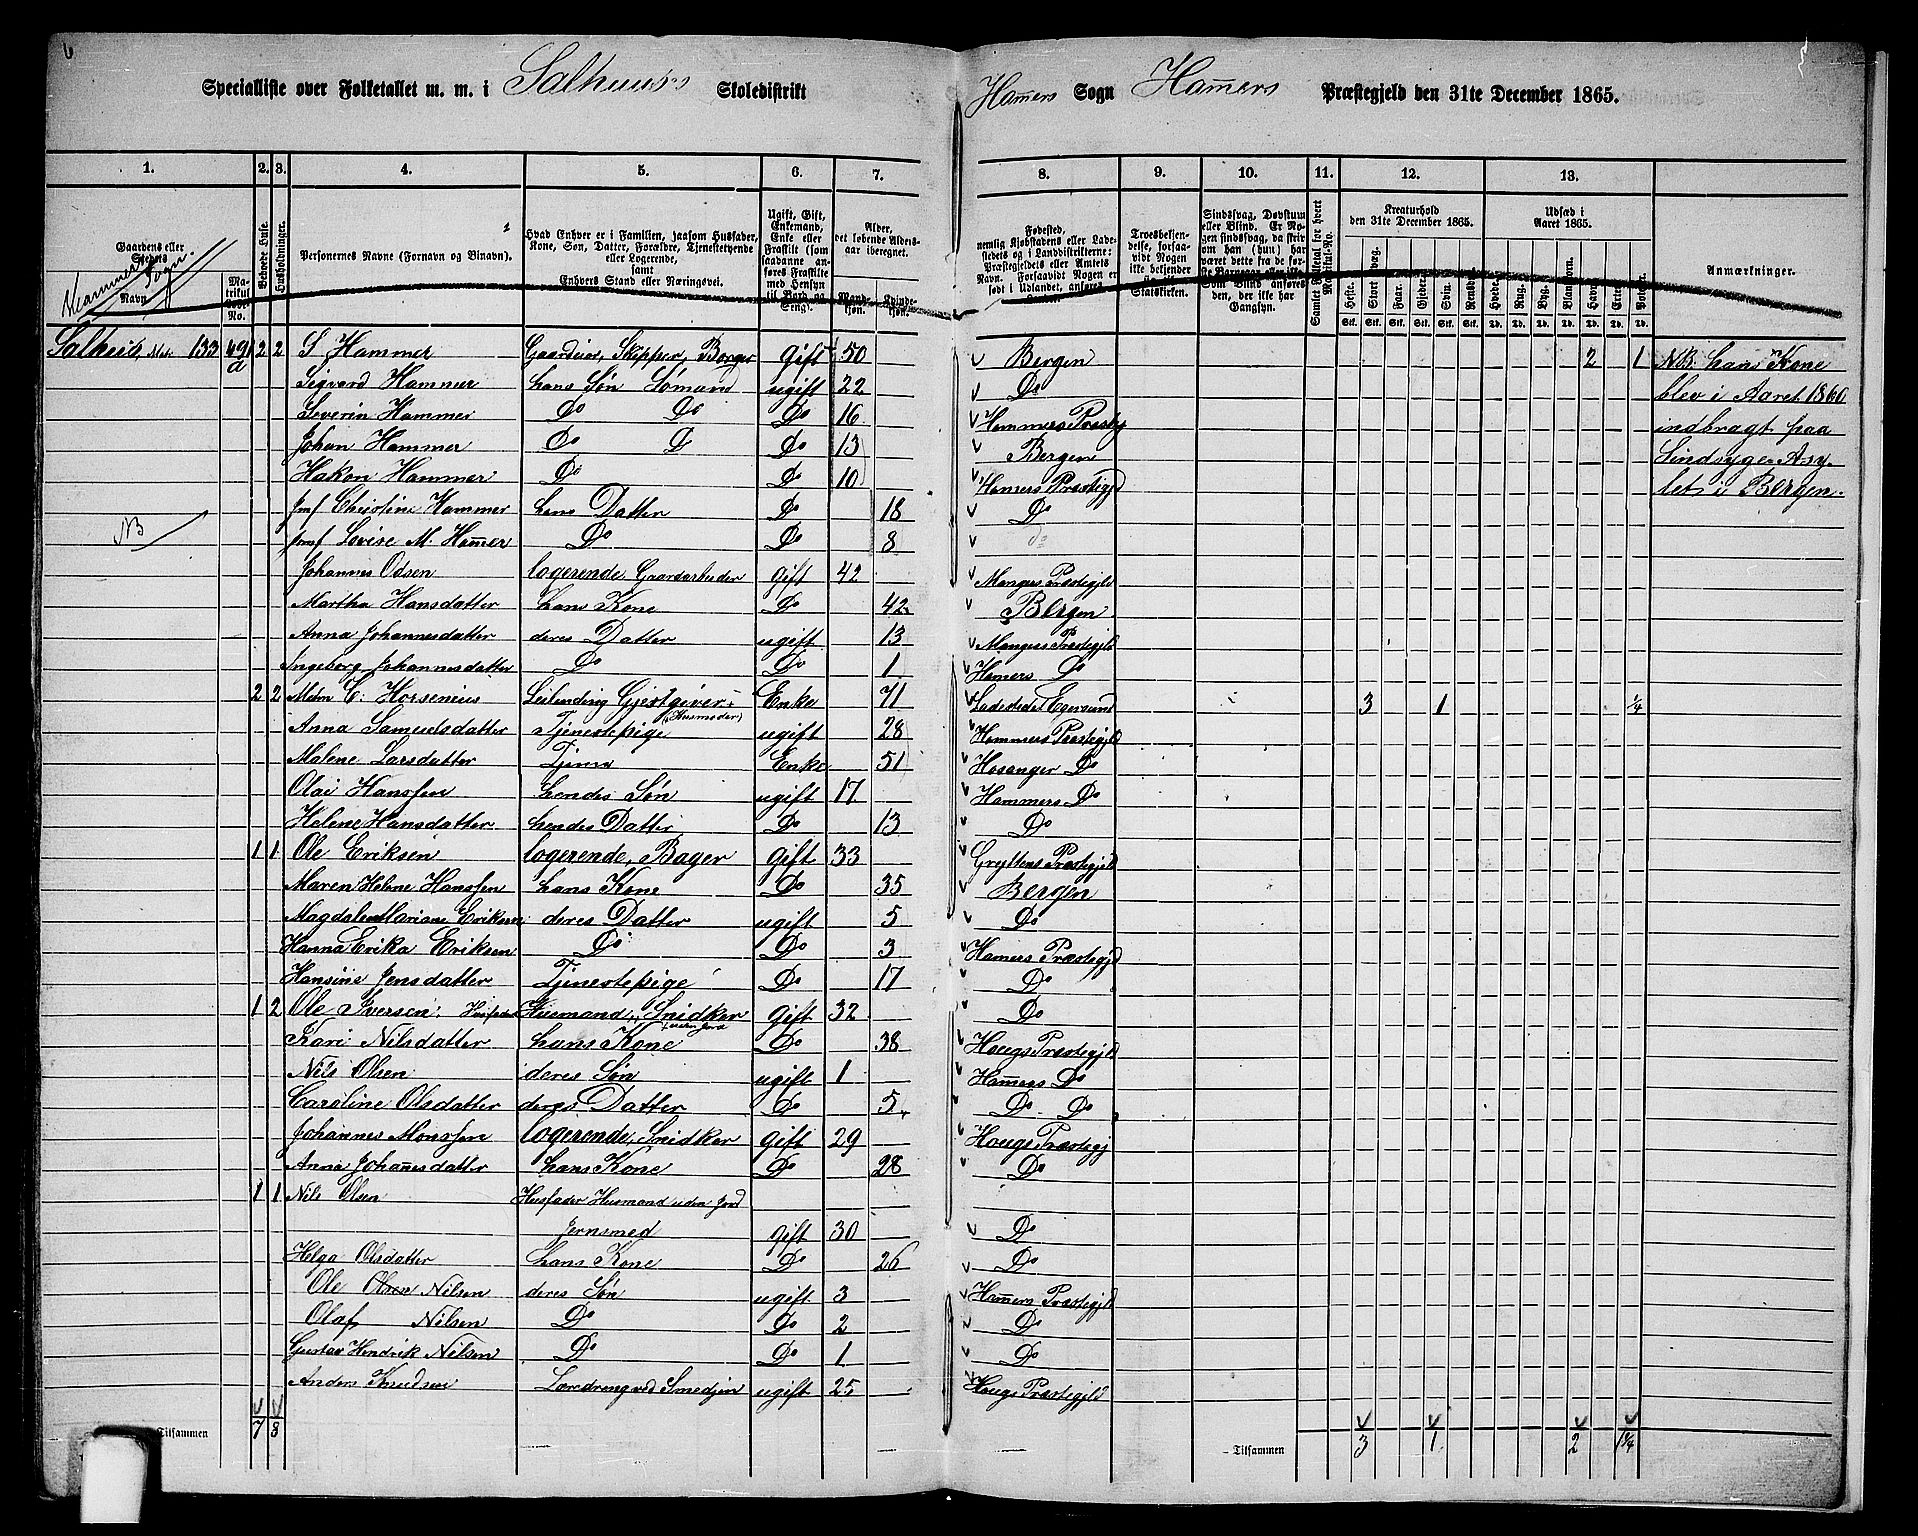 6
Specialliste over Folketallet m. m. i Salhuus Skoledistrikt Hamers Sogn Hamers Præstegjeld den 31te December 1865.
1. 2. 3. 4. 5. 6. 7. 8. 9. 10. 11. 12. 13.
Gaardens eller Stedets Navn. Matrikul No. Beboede Huse. Husholdninger. Personernes Navne (Fornavn og Binavn). Hvad Enhver er i Familien, saasom Husfader, Kone, Søn, Datter, Forældre, Tjenestetyende eller Logerende, samt Enhvers Stand eller Næringsvei. Ugift, Gift, Enkemand, Enke eller Fraskilt Alder, det løbende Aldersaar iberegnet. Fødested, Troesbekjendelse, Sindssvag, Døvstum eller Blind. Kreaturhold den 31te December 1865. Udsæd i Aaret 1865. Anmærkninger.
Hammers Sogn
Salhus 133 49 a 2 2 S Hammer Gaardeier, Skipper, Borger gift 50 Bergen 2 1 NB. hans Kone
Sigvard Hammer hans Søn Sømand ugift 22 Do blev i Aaret 1860
Severin Hammer Do Do Do 16 Hammers Præstg indbragt paa
Johan Hammer Do D Do 13 Bergen Sindsyge-Asy
Hakon Hammer Do Do 10 Hamers Præstegjd let i Bergen.
Jmf Christine Hammer hans Datter Do 18 Do
NB Jmf Lovise M. Hamer Do Do 8 Do
Johannes Odsen logerende Gaardarbeider gift 42 Mangers Præstegjld
Martha Hansdatter hans Kone Do 42 Bergen
Anna Johannesdatter deres Datter ugift 13 Mangers Præstegjld
Ingeborg Johannesdatter Do Do 1 Hamers Do
2 2 Mdm C. Horsenius Leilending Gjestgiver (Husmoder) Enke 71 Ladestedet Egersund 3 1 1/4
Anna Samuelsdatter Tjenestepige ugift 28 Hammers Præstegjld
Malene Larsdatter Tjener Enke 51 Hosanger Do
Olai Hanssen hendes Søn ugift 17 Hammers Do
Helene Hansdatter hendes Datter Do 13 Do
1 1 Ole Eriksen logerende, Bager gift 33 Gryttens Præstegjld
Maren Helene Hanssen hans Kone Do 35 Bergen
Magdalene Mariane Eriksen deres Datter ugift 5 Do
Hanna Erika Eriksen Do Do 3 Hamers Præstegjd
Hansine Jensdatter Tjenestepige Do 17 Do
1 2 Ole Iversen Husfader Husmand, Snidker uden Jord gift 32 Do
Kari Nilsdatter hans Kone Do 38 Hougs Præstegjld
Nils Olsen deres Søn ugift 1 Hamers Do
Caroline Olsdatter deres Datter Do 5 Do Do
Johannes Monssen logerende, Snidker gift 29 Hougs Præstegj
Anna Johanesdatter hans Kone Do 28 Do
1 1 Nils Olsen Husfader Husmand uden Jord
Jernsmed gift 30 Do
Helga Olsdatter hans Kone Do 26 Do
Ole Olsen Nilsen deres Søn ugift 3 Hamers Præstegjld
Olaf Nilsen Do Do 2 Do
Gustav Hendrik Nilsen Do Do 1 Do
Anders Knudsen Lærdreng ved Smedjen ugift 25 Hougs Præstegjeld
Tilsammen 7 8 Tilsammen 3 1 2 1 1/4